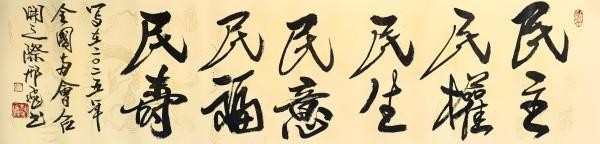 民主
民權
民生
民意
民福
民壽
寫在二〇二五年
全國兩會召
開之際